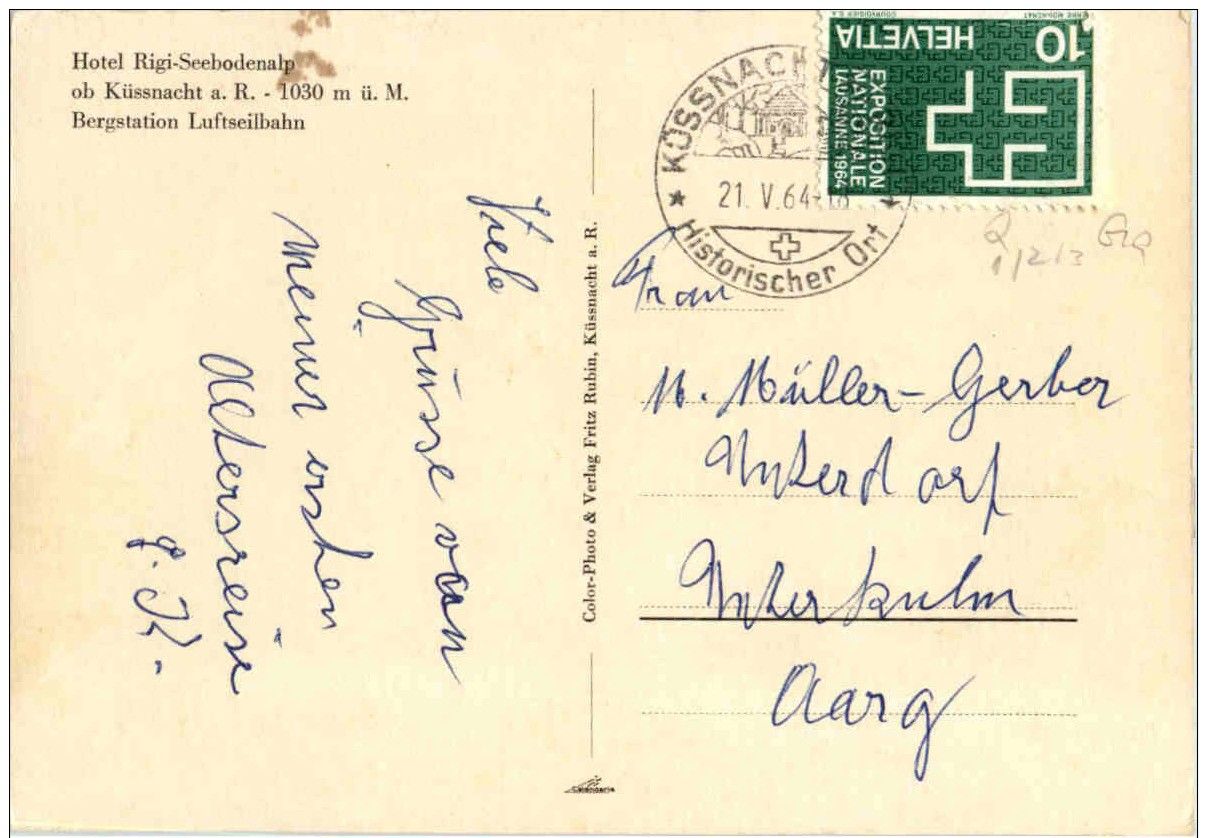 Hotel Rigi-Seebodenalp
ob Küssnacht a. R. - 1030 m ü. M.
Bergstation Luftseilbahn
Viele
Grüsse von
meiner ersten
Altersreise
J. K.
Color-Photo & Verlag Fritz Rubin, Küssnacht a. R.
KÜSSNACHT
21. V. 64-18
Historischer Ort
HELVETIA
10
EXPOSITION
NATIONALE
LAUSANNE 1964
COURVOISIER S.A.
Frau
M. Müller-Gerber
Unterdorf
Unterkulm
Aarg
1/2/3